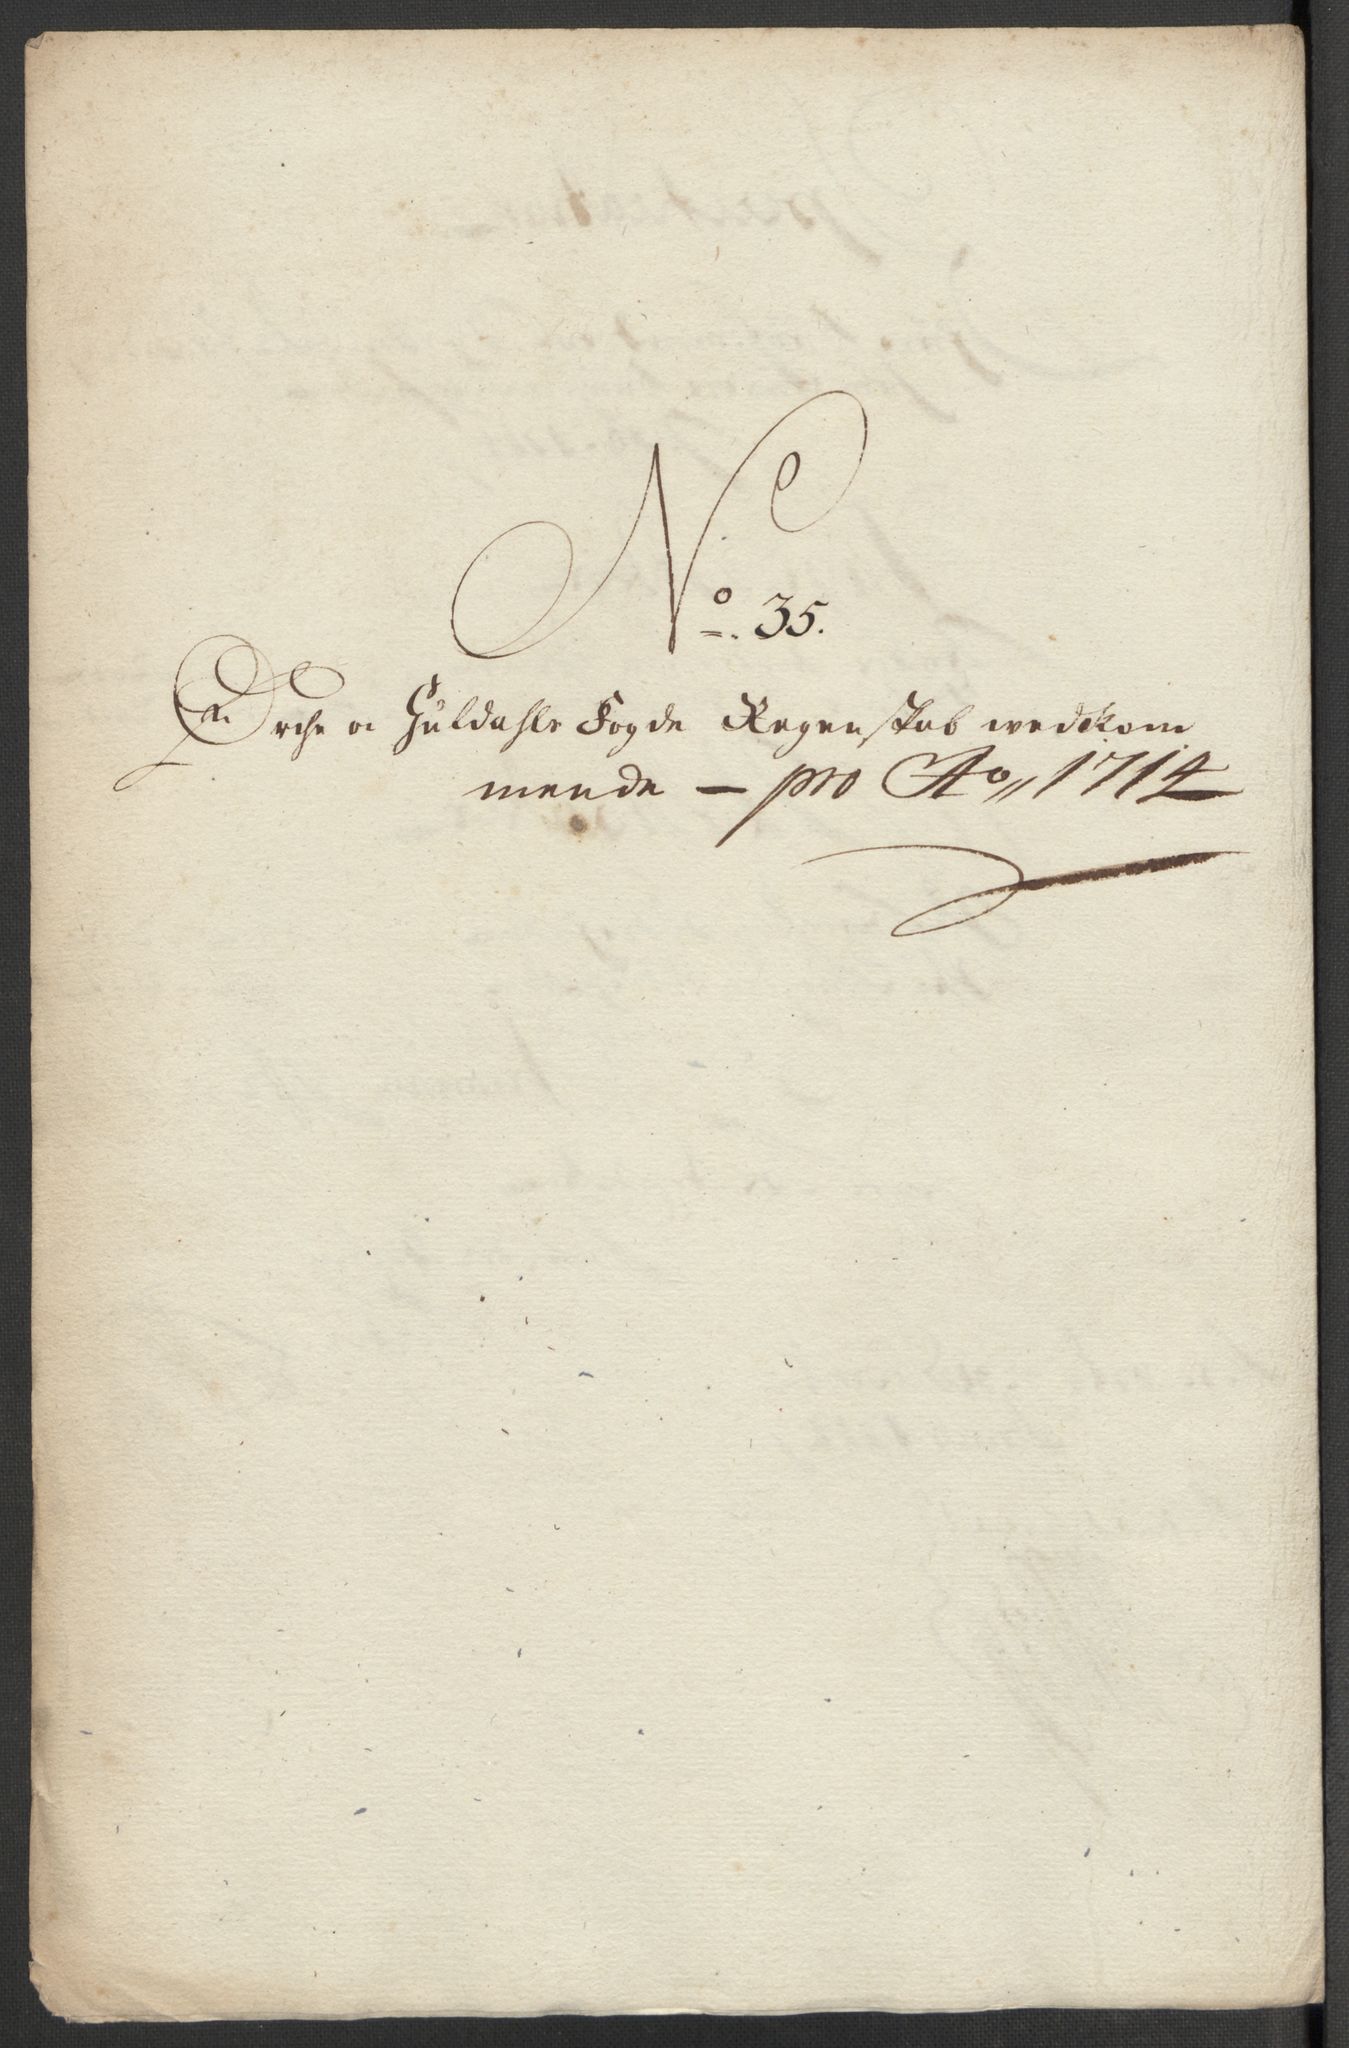 No. 35.
Orche oc Guldahls Fogde Regenskab wedkom
mende — pro Ao 1714